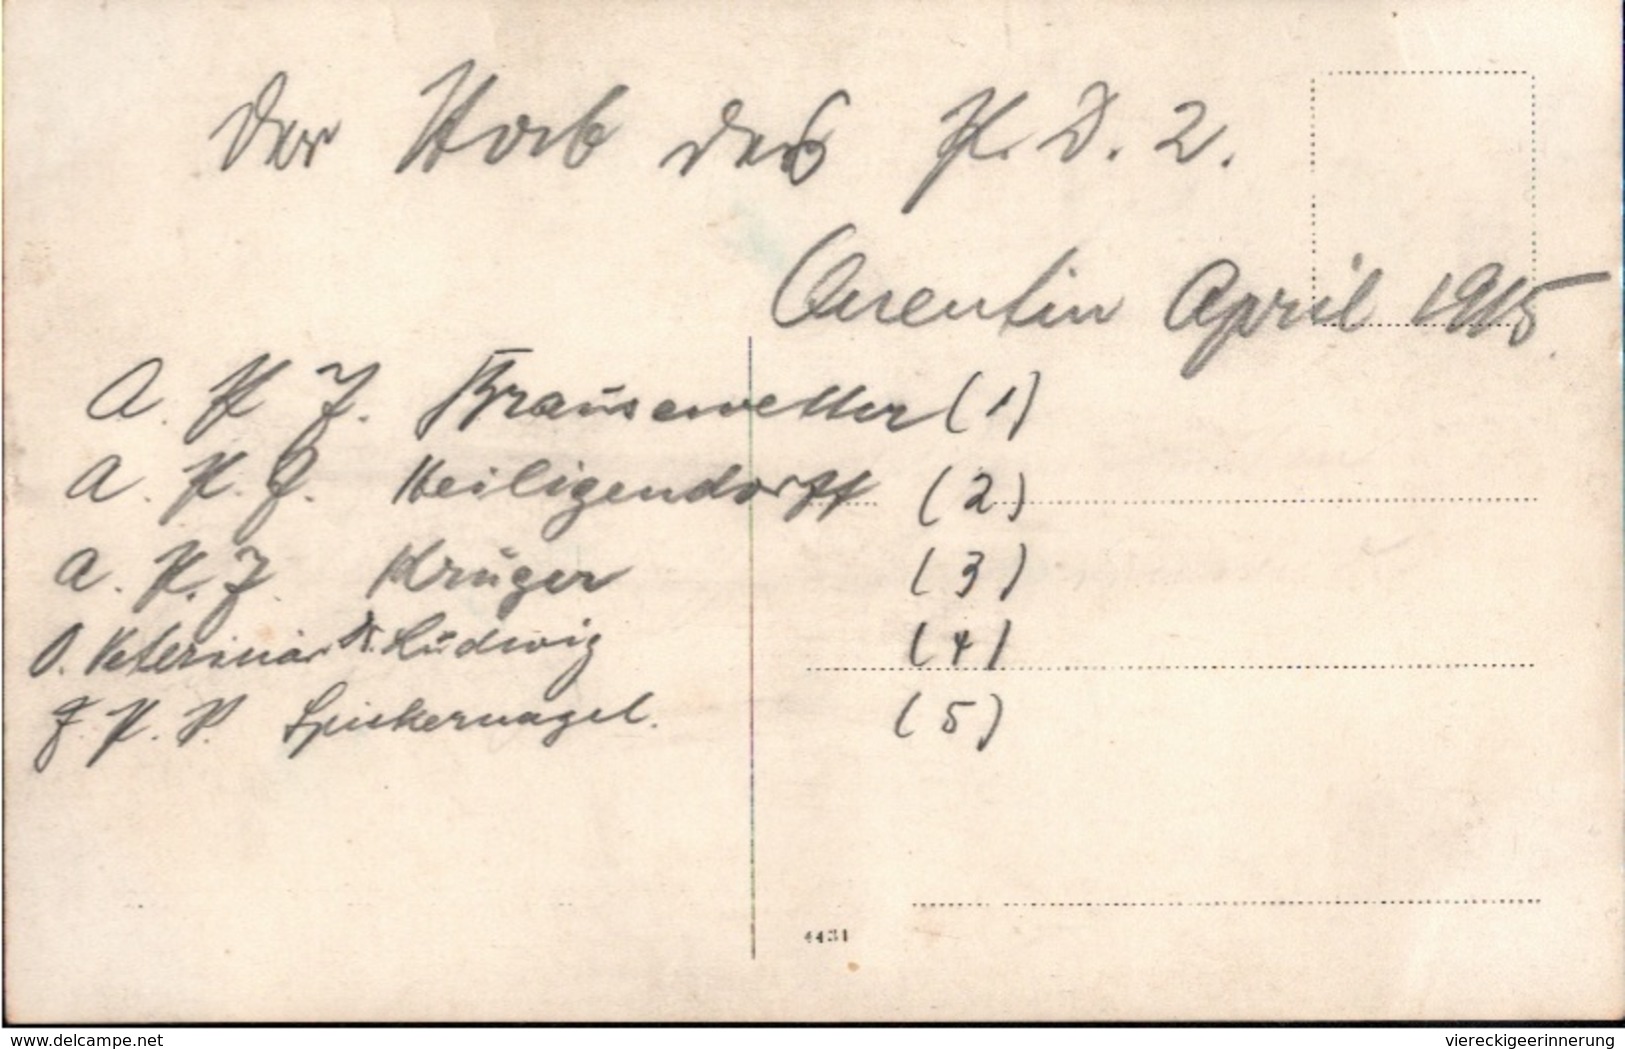 Der Stab des P. D. 2.
Quentin April 1915.
A. K. J. Brausewetter (1)
A. K. J. Heiligendorff (2)
A. K. J. Krüger (3)
O. Veterinär Dr. Ludwig (4)
F. K. P. Spickernagel. (5)
4431
www.delcampe.net
viereckigeerinnerung